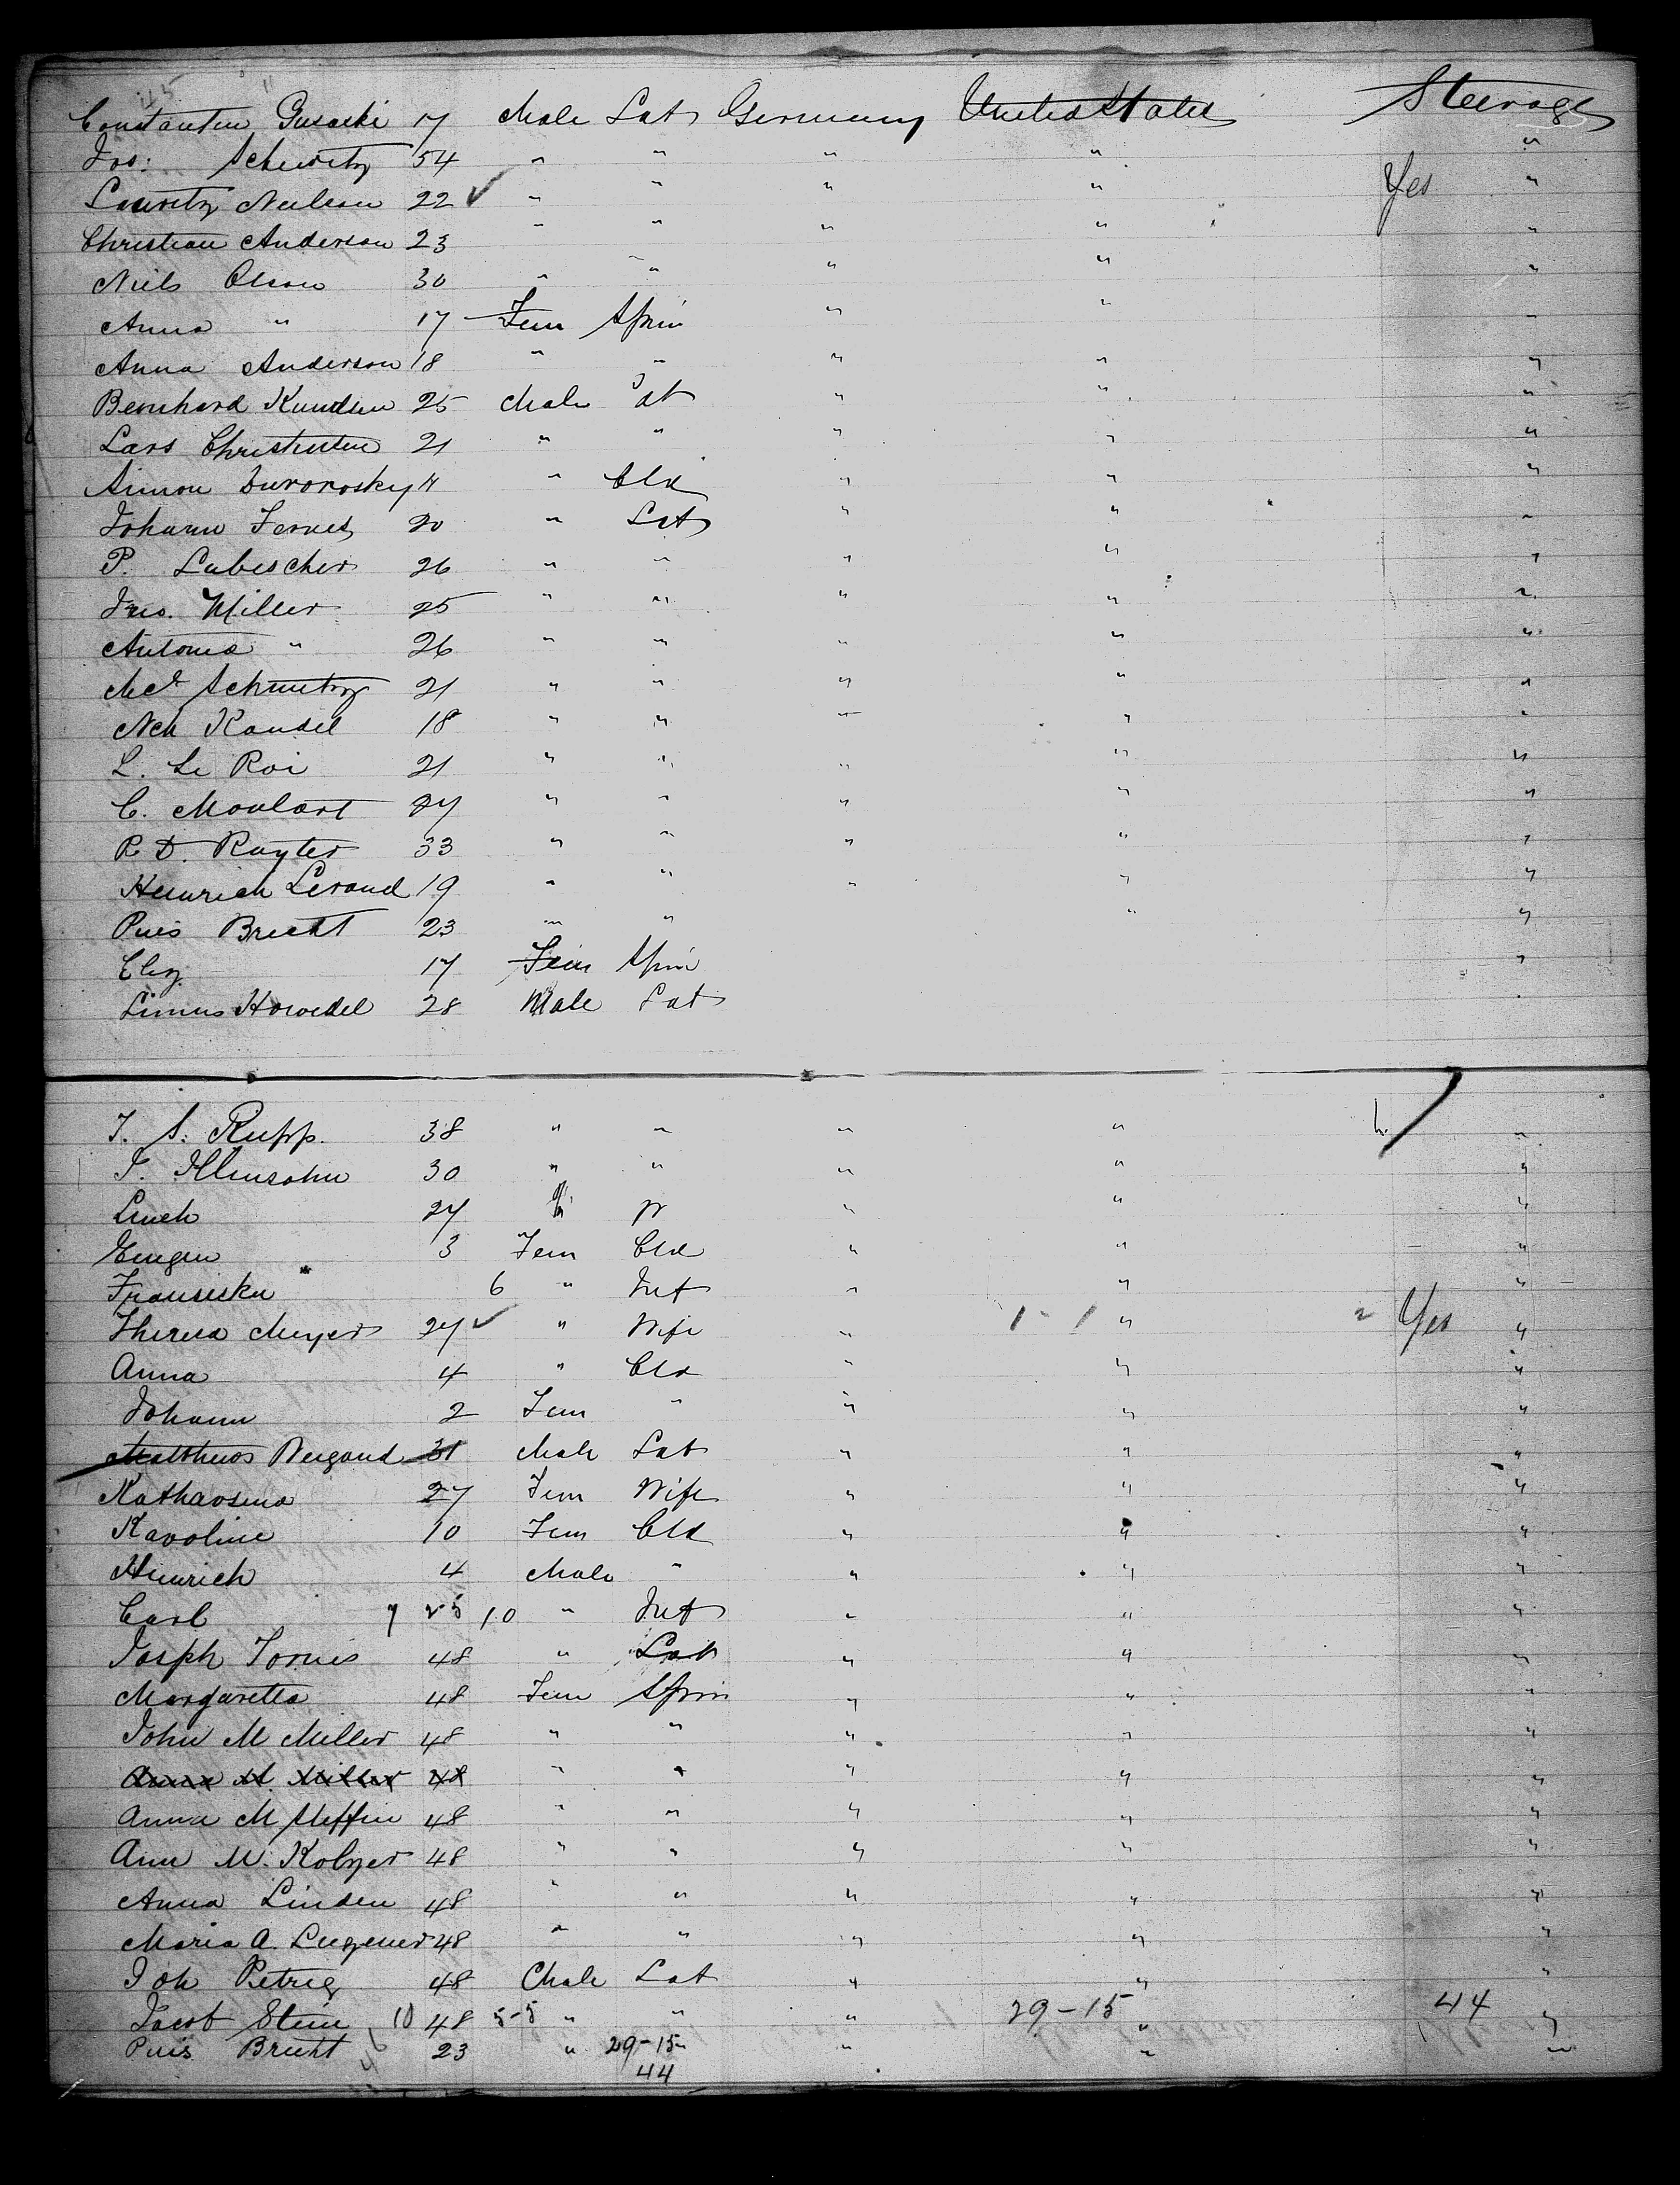 Constantin Gusaski 17 Male Lab Germany United States Steerage
Jos: Schwitz 54 " " " " "
Lauritz Neilson 22 ✓ " " " " Yes "
Christian Anderson 23 " " " " "
Niels Olson 30 " " " " "
Anna " 17 Fem Spin " " "
Anna Anderson 18 " " " " "
Bernhard Knudsen 25 Male Lab " " "
Lars Christensen 21 " " " " "
Simon 11 " Cld " " "
Johann 20 " Lab " " "
P. Lubescher 26 " " " " "
Jno. Miller 25 " " " " "
Antonia " 26 " " " " "
Schmitz 21 " " " " "
Nch Kandel 18 " " " " "
L. Le Roi 21 " " " " "
C. Moulart 27 " " " " "
R D. Ruyter 33 " " " " "
Heinrich Lerand 19 " " " " "
Puis Brecht 23 " " " "
Eliz 17 Fem Spin "
Linus Howedel 28 Male Lab "
J. S. Rupp. 38 " " " " "
J. 30 " " " " "
27 W " " "
Eugen 3 Fem Cld " " "
Fransiska 6 " Inf " " "
Theresa Meyer 27 ✓ " Wife " 1 - 1 " 2 Yes "
Anna 4 " Cld " " "
Johann 2 Fem " " " "
Matthias Weigand 31 Male Lab " " "
Katharina 27 Fem Wife " " "
Karoline 10 Fem Cld " " "
Heinrich 4 Male " " " "
Carl 7 25 10 " Inf " " "
Joseph 48 " Lab " " "
Margaretta 48 Fem Spin " " "
John M Miller 48 " " " " "
Anna M. Miller 48 " " " " "
Anna M Steffen 48 " " " " "
Ann M. Kolzer 48 " " " " "
Anna Linden 48 " " " " "
Maria A. 48 " " " " "
Joh Petrig 48 Male Lab " " "
Jacob Stein 10 48 5-5 " " " 29-15 " 44 "
Puis Brecht 23 " 29-15 " " "
44